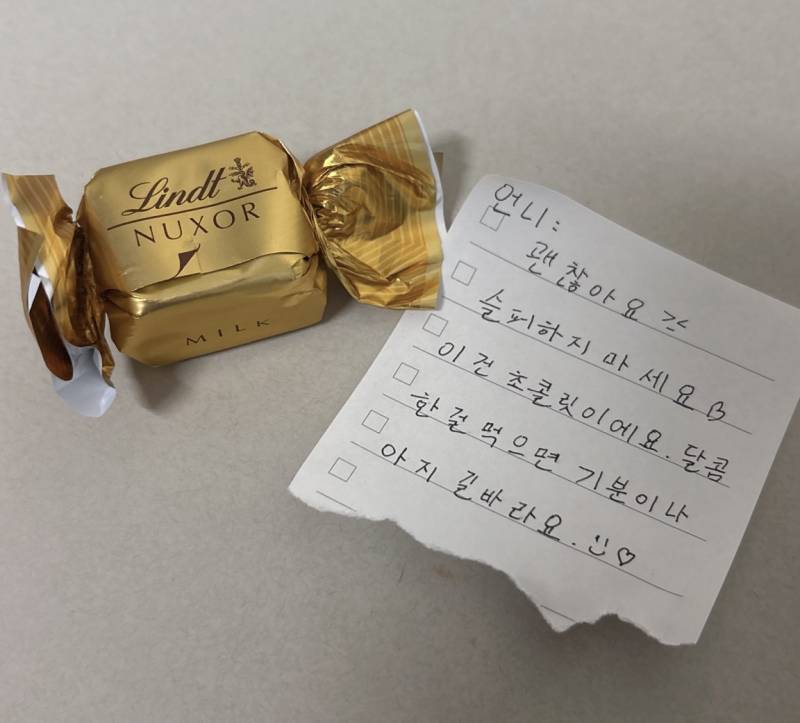 Lindt
NUXOR
MILK
언니:
괜찮아요 ><
슬퍼하지 마세요♡
이건 초콜릿이에요. 달콤
한 걸 먹으면 기분이 나
아지길 바라요. :) ♡